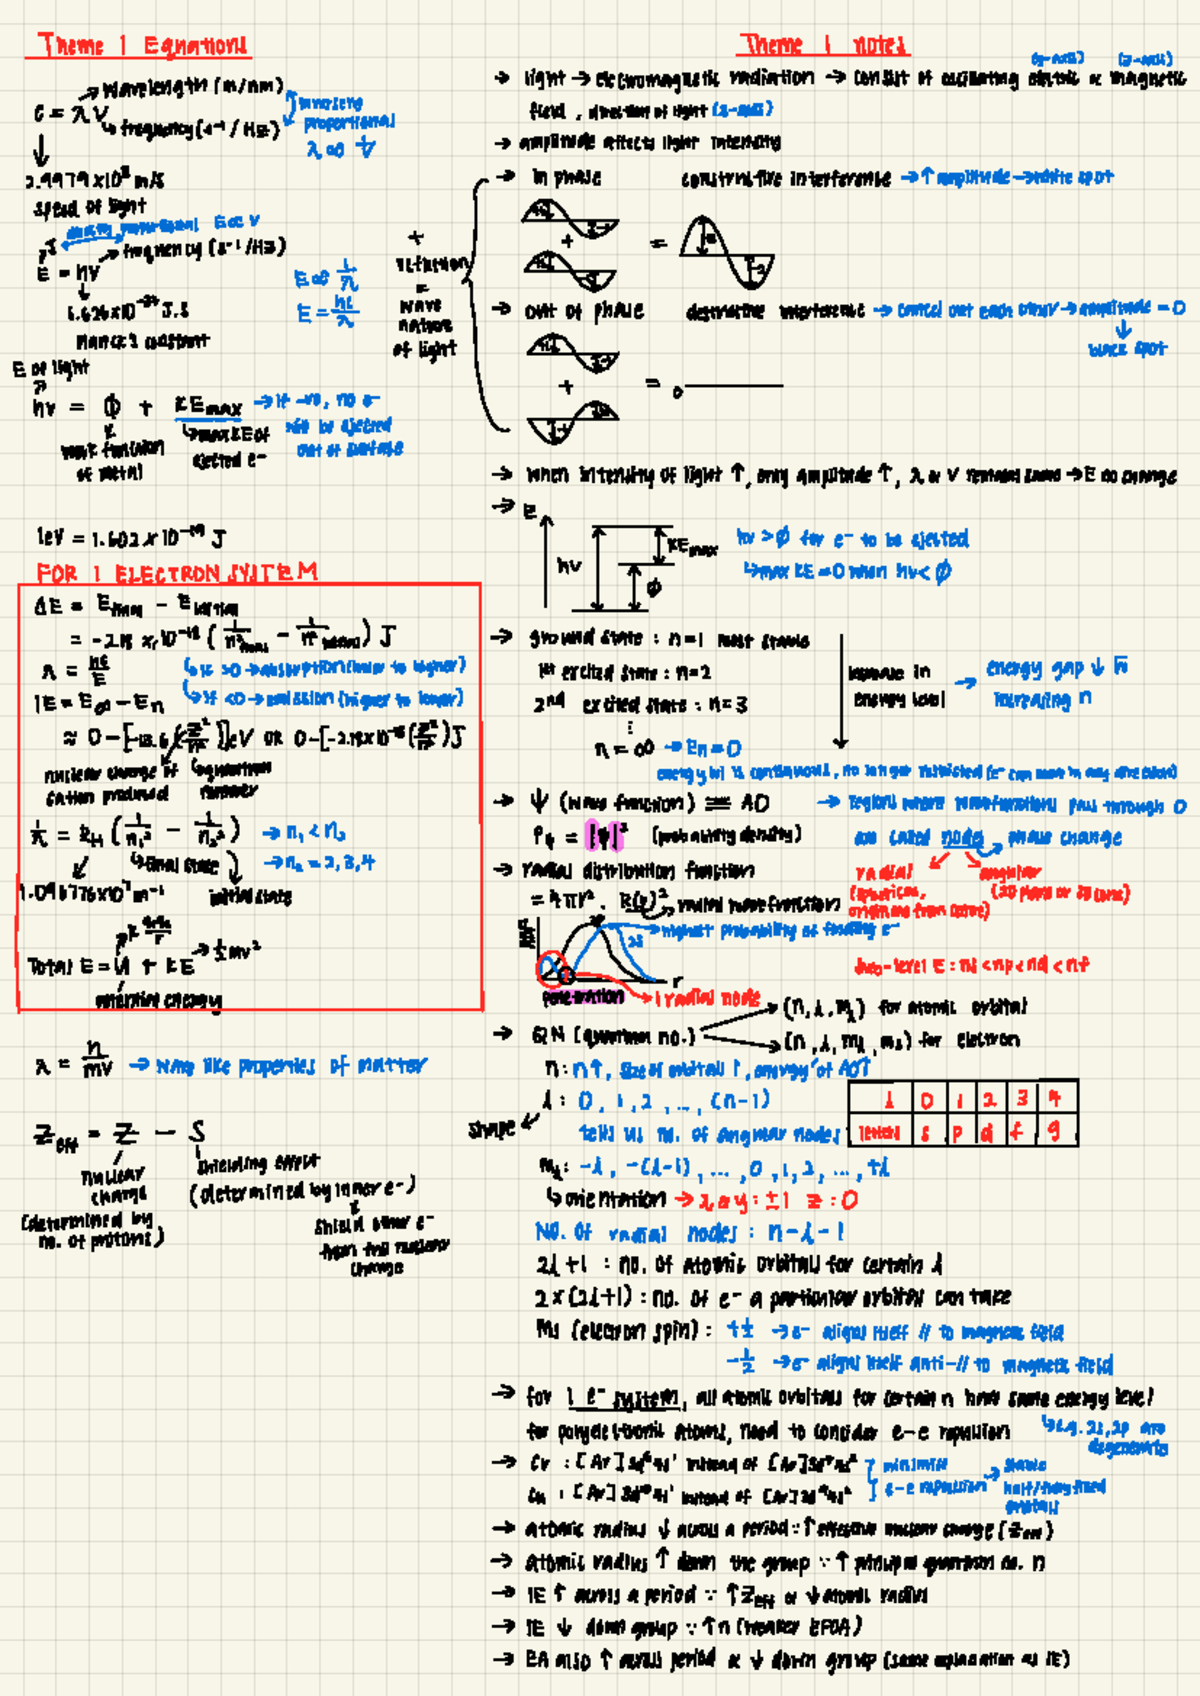 Theme 1 Equations
→ wavelength (m/nm)
c = λV
↳ frequency (s⁻¹ / Hz)
inversely
proportional
λ ∝ 1/V
2.9979 x10⁸ m/s
speed of light
directly proportional E ∝ V
J
→ frequency (s⁻¹/Hz)
E = hV
6.626x10⁻³⁴ J.s
Planck's constant
E ∝ 1/λ
E = hc/λ
E of light
hv = Φ + KEmax → If -ve, no e⁻
will be ejected
out of surface
work function
of metal
↳ max KE of
ejected e⁻
1eV = 1.602 x 10⁻¹⁹ J
FOR 1 ELECTRON SYSTEM
ΔE = Efinal - Einitial
= -2.18 x 10⁻¹⁸ (1/n²final - 1/n²initial) J
λ = hc/E
↳ if >0 → absorption (lower to higher)
↳ if <0 → emission (higher to lower)
IE = E∞ - En
≈ 0 - [-13.6 (Z²/n²)] eV OR 0 - [-2.18x10⁻¹⁸ (Z²/n²)] J
nuclear charge of
cation produced
↳ quantum
number
1/λ = RH (1/n₁² - 1/n₂²) → n₁ < n₂
→ n₂ = 2,3,4
↳ final state
initial state
1.096776x10⁷ m⁻¹
Total E = U + KE → ½mv²
potential energy
λ = h/mv → wave like properties of matter
Zeff = Z - S
nuclear
charge
(determined by
no. of protons)
shielding effect
(determined by inner e⁻)
shield outer e⁻
from full nuclear
charge
+
diffraction
=
wave
nature
of light
Theme 1 notes
(y-axis) (z-axis)
→ light → electromagnetic radiation → consist of oscillating electric & magnetic
field, direction of light (x-axis)
→ amplitude affects light intensity
→ in phase constructive interference → ↑ amplitude → white spot
+ =
→ out of phase destructive interference → cancel out each other → amplitude = 0
black spot
+ = 0
→ when intensity of light ↑, only amplitude ↑, λ & V remains same → E no change
→ E
hv
KEmax
Φ
hv > Φ for e⁻ to be ejected
↳ max KE = 0 when hv < Φ
→ ground state : n=1 most stable
1st excited state : n=2
2nd excited state : n=3
⋮
n = ∞ → En = 0
increase in
energy level
→ energy gap ↓ w
increasing n
energy lvl is continuous, no longer restricted (e⁻ can move in any direction)
→ Ψ (wave function) ≡ AO → regions where wavefunctions pass through 0
are called node → phase change
Pψ = |Ψ|² (probability density)
radial
(spherical,
originate from centre)
angular
(2D plane or 3D cone)
→ radial distribution function
= 4πr² . R(r)² → radial wavefunction
→ highest probability of finding e⁻
RDF
2s
r
penetration
1 radial node
sub-level E : ns < np < nd < nf
→ QN (quantum no.)
(n, l, ml) for atomic orbital
(n, l, ml, ms) for electron
n: n↑, size of orbital ↑, energy of AO↑
shape
l: 0, 1, 2, ..., (n-1)
tells us no. of angular nodes
l 0 1 2 3 4
letters s p d f g
ml: -l, -(l-1), ..., 0, 1, 2, ..., +l
↳ orientation → x & y : ±1 z : 0
No. of radial nodes : n-l-1
2l+1 : no. of atomic orbitals for certain l
2×(2l+1) : no. of e⁻ a particular orbital can take
Ms (electron spin) : +½ → e⁻ aligns itself // to magnetic field
-½ → e⁻ aligns itself anti-// to magnetic field
→ for 1 e⁻ system, all atomic orbitals for certain n have same energy level
↳ e.g. 2s, 2p are
degenerate
for polyelectronic atoms, need to consider e-e repulsion
→ Cr : [Ar] 3d⁵4s¹ instead of [Ar] 3d⁴4s²
Cu : [Ar] 3d¹⁰4s¹ instead of [Ar] 3d⁹4s²
minimise
e-e repulsion
→ stable
half/fully filled
orbitals
→ atomic radius ↓ across a period ∵ ↑ effective nuclear charge (Zeff)
→ atomic radius ↑ down the group ∵ ↑ principal quantum no. n
→ IE ↑ across a period ∵ ↑ Zeff & ↓ atomic radius
→ IE ↓ down group ∵ ↑n (weaker EFOA)
→ EA also ↑ across period & ↓ down group (same explanation as IE)